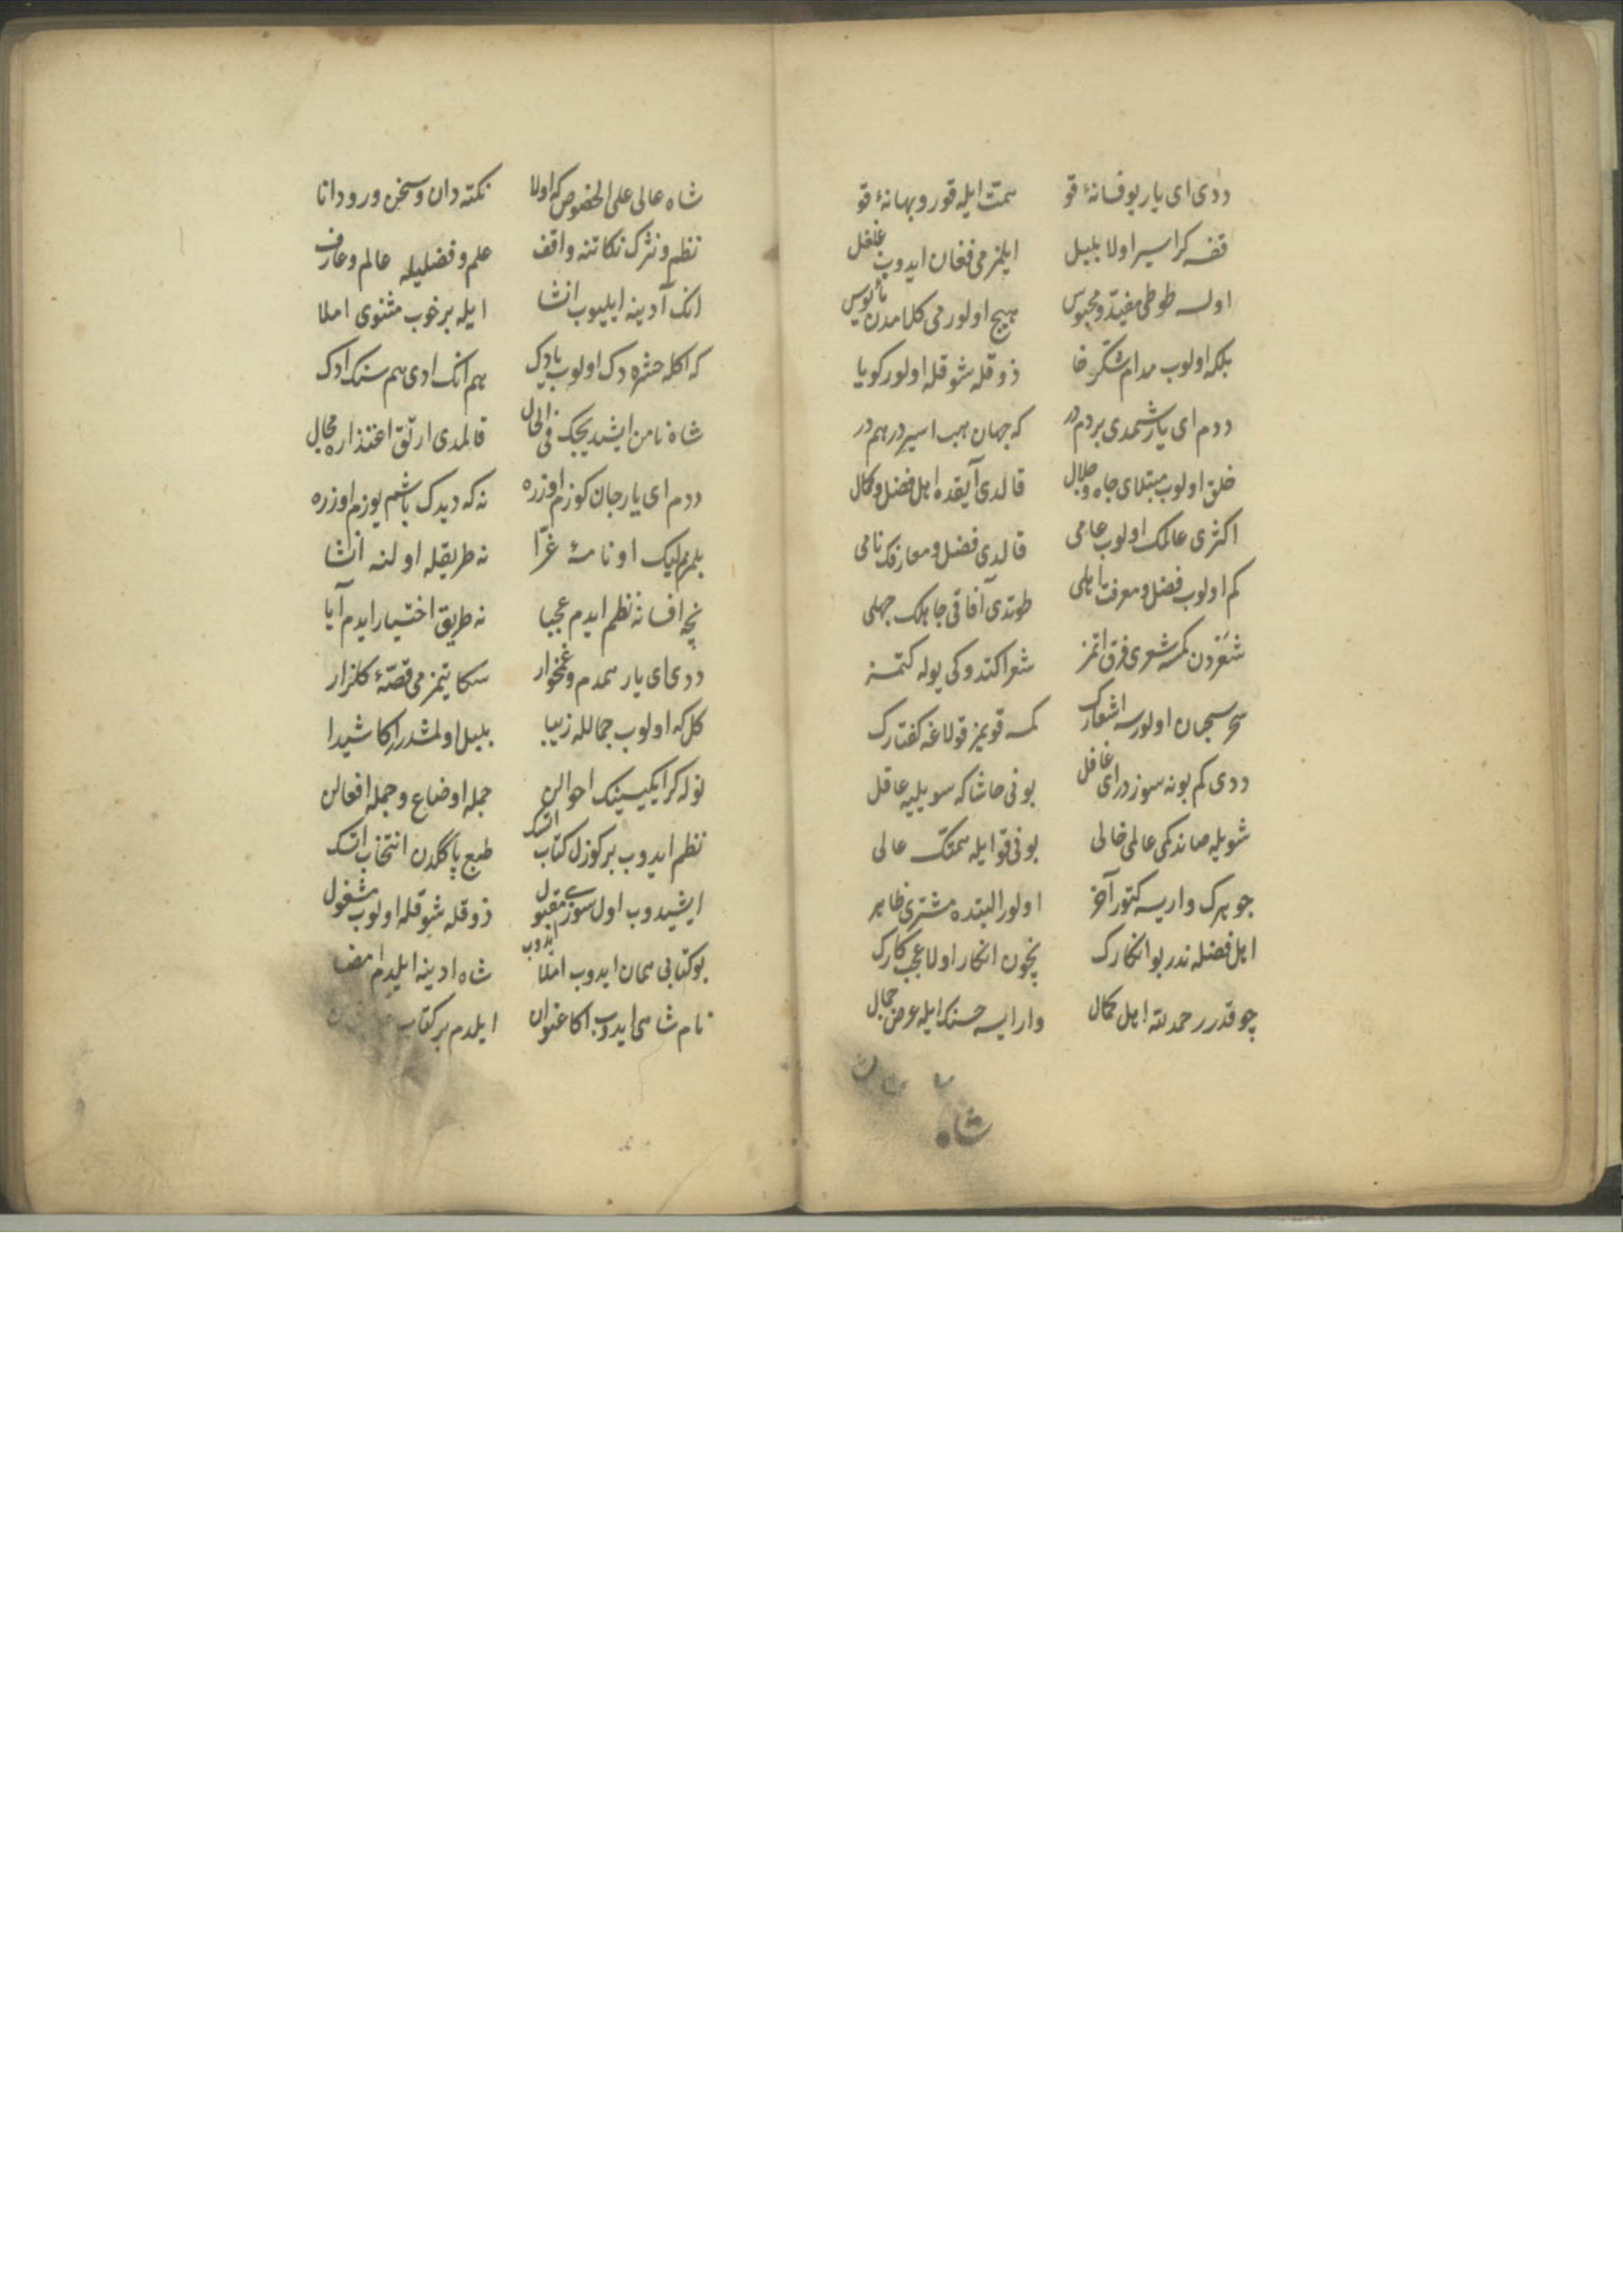 ددی ای یار بو فسانهٔ قو همت ایله قورو بهانهٔ قو
قفسه کر اسیر اولا بلبل ایلمز می فغان ایدوب غلغل
اولسه طوطی مقید و محبوس هیچ اولور می کلامدن مأیوس
بلکه اولوب مدام شکر خا ذوقله شوقله اولور کویا
ددم ای یار شمدی بر دمدر که جهان هب اسیر درهمدر
خلق اولوب مبتلای جاه و جلال قالدی آیقده اهل فضل و کمال
اکثری عالمک اولوب عامی قالدی فضل و معارفک نامی
کم اولوب فضل و معرفت اهلی طوتدی آفاقی جاهلک جهلی
شعردن کمسه شعری فرق اتمز شعرا کتدوکی یوله کتمز
سحر سحبان اولورسه اشعارک کمسه قویمز قولاغه کفتارک
ددی کم بو نه سوزدر ای غافل بونی حاشا که سویلیه عاقل
شویله صاندکمی عالمی خالی بونی قو ایله همتک عالی
جوهرک واریسه کتور آخر اولور البتده مشتری ظاهر
اهل فضله ندر بو انکارک نچون انکار اولا عجب کارک
چوقدرر حمد لله اهل کمال وار ایسه حسنک ایله عرض جمال
شاه
شاه عالی علی الخصوص که اولا نکته دان و سخن ور و دانا
نظم و نثرک نکاتنه واقف علم و فضلیله عالم و عارف
انک آدینه ایلیوب انشا ایله بر خوب مثنوی املا
که اکله حشره دک اولوب یادک هم انک ادی هم سنک ادک
شاه نامن ایشدیجک فی الحال قالمدی ارتق اعتذاره مجال
ددم ای یار جان کوزم اوزره نه که دیدک باشم یوزم اوزره
بلمزم لیک او نامهٔ غرا نه طریقله اولنه انشا
نچه افسانه نظم ایدم عجبا نه طریق اختیار ایدم آیا
ددی ای یار همدم و غمخوار سکا یتمز می قصهٔ کلزار
کل که اولوب جمالله زیبا بلبل اولمشدرر اکا شیدا
نوله کر ایکیسینک احوالن جمله اوضاع و جمله افعالن
نظم ایدوب بر کوزل کتاب اتسک طبع پاکلدن انتخاب اتسک
ایشیدوب اول سوزی مقبول ذوقله شوقله اولوب مشغول
بو کتابی همان ایدوب املا ایدوب شاه ادینه ایلدم امضا
نام شاهی ایدوب اکا عنوان ایلدم بر کتاب